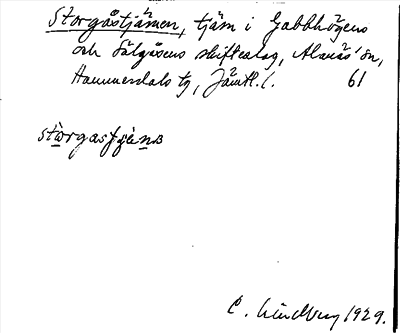 Storgåstjärnen, tjärn i Gabbhögens
och Sälgåsens skifteslag, Alanäs' sn,
Hammerdals tg, Jämtl. l. 61
C. Lindberg 1929.